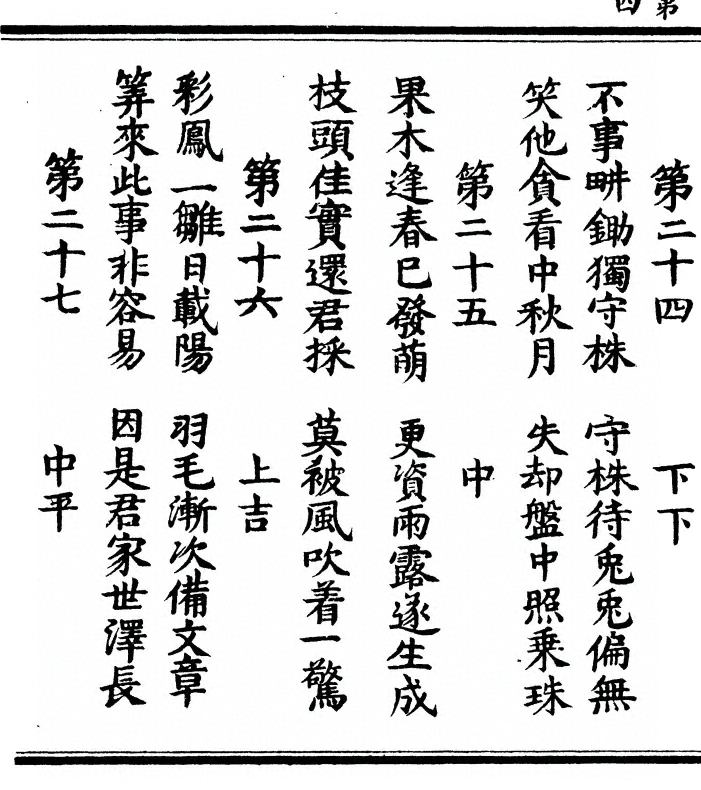 第四
第二十四 下下
不事畊鋤獨守株 守株待兎兎偏無
笑他貪看中秋月 失却盤中照乗珠
第二十五 中
果木逢春已發萌 更資雨露遂生成
枝頭佳實還君採 莫被風吹着一驚
第二十六 上吉
彩鳳一雛日載陽 羽毛漸次備文章
筭來此事非容易 因是君家世澤長
第二十七 中平